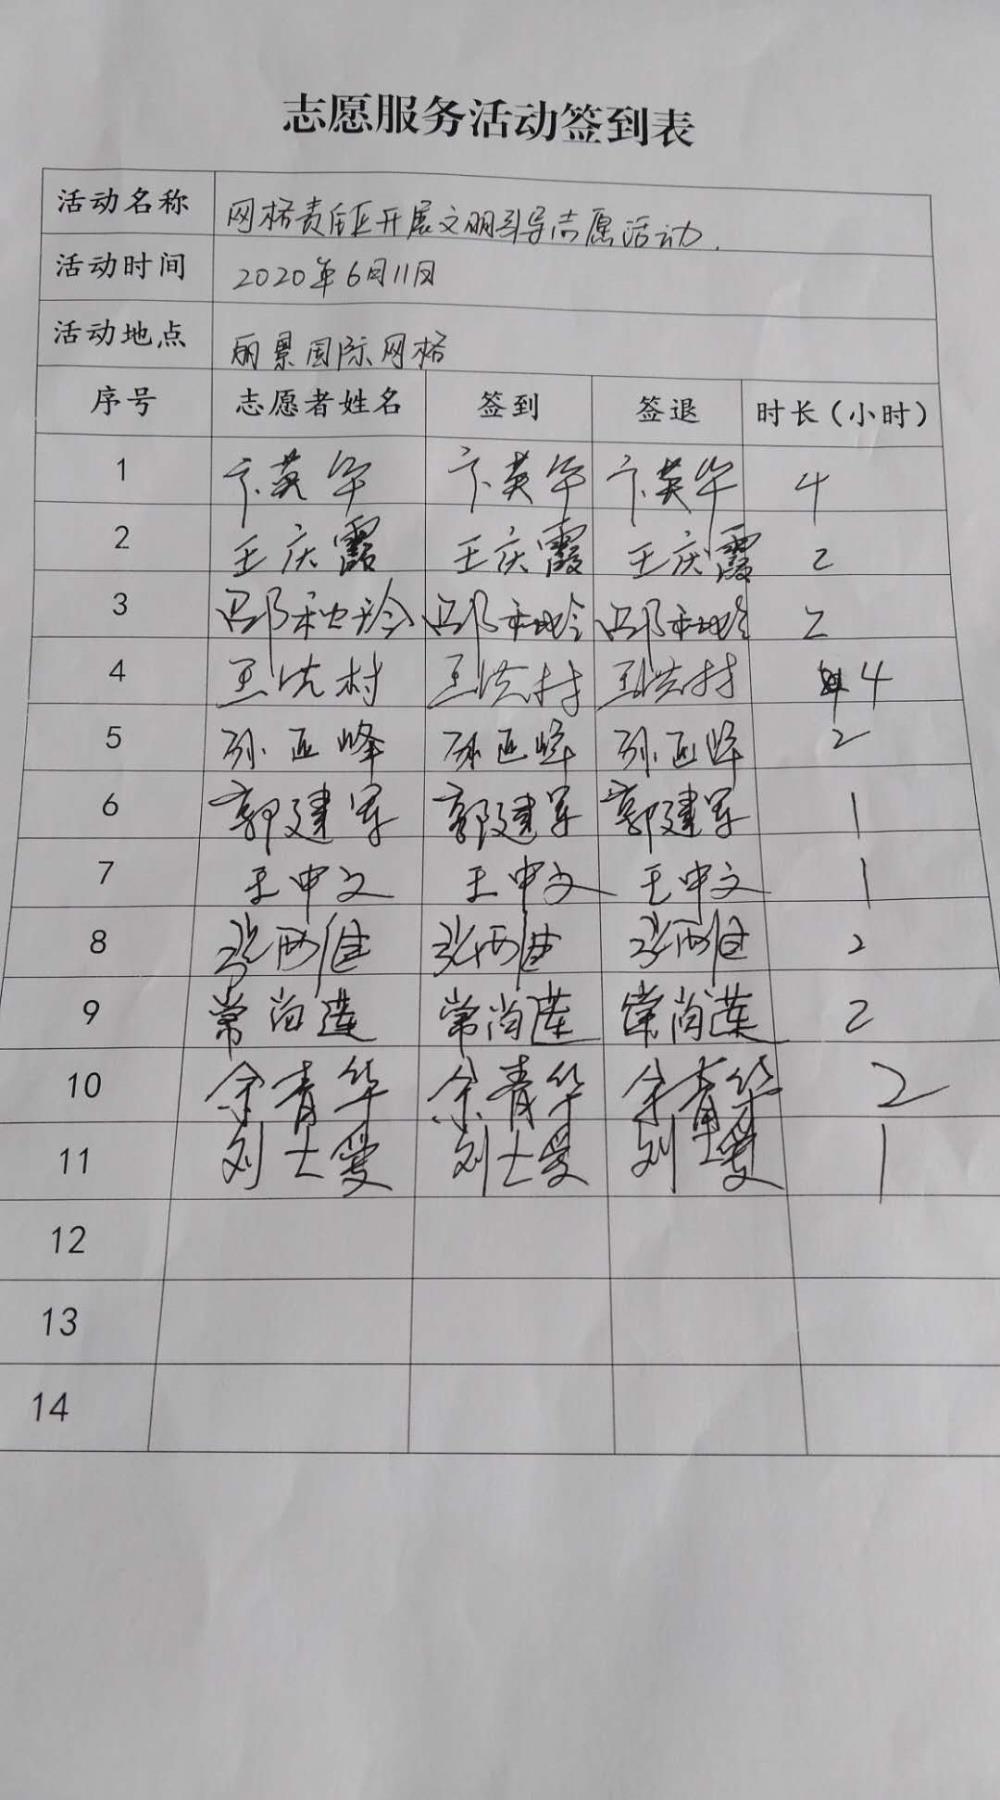 志愿服务活动签到表
活动名称 网格责任区开展文明引导志愿活动.
活动时间 2020年6月11日
活动地点 丽景国际网格
序号 志愿者姓名 签到 签退 时长(小时)
1 卞英华 卞英华 卞英华 4
2 王庆霞 王庆霞 王庆霞 2
3 2
4 王洪村 王洪村 王洪村 4
5 孙亚峰 孙亚峰 孙亚峰 2
6 郭建军 郭建军 郭建军 1
7 王申文 王申文 王申文 1
8 2
9 常尚莲 常尚莲 常尚莲 2
10 余青华 余青华 余青华 2
11 刘士爱 刘士爱 刘士爱 1
12
13
14